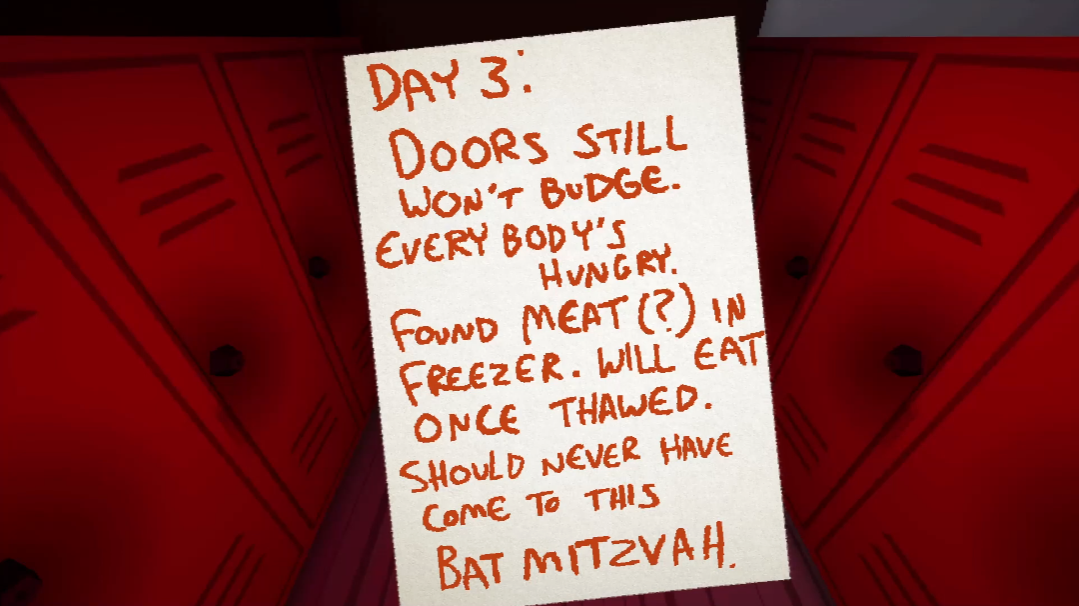 DAY 3:
DOORS STILL
WON'T BUDGE.
EVERYBODY'S
HUNGRY.
FOUND MEAT(?) IN
FREEZER. WILL EAT
ONCE THAWED.
SHOULD NEVER HAVE
COME TO THIS
BAT MITZVAH.